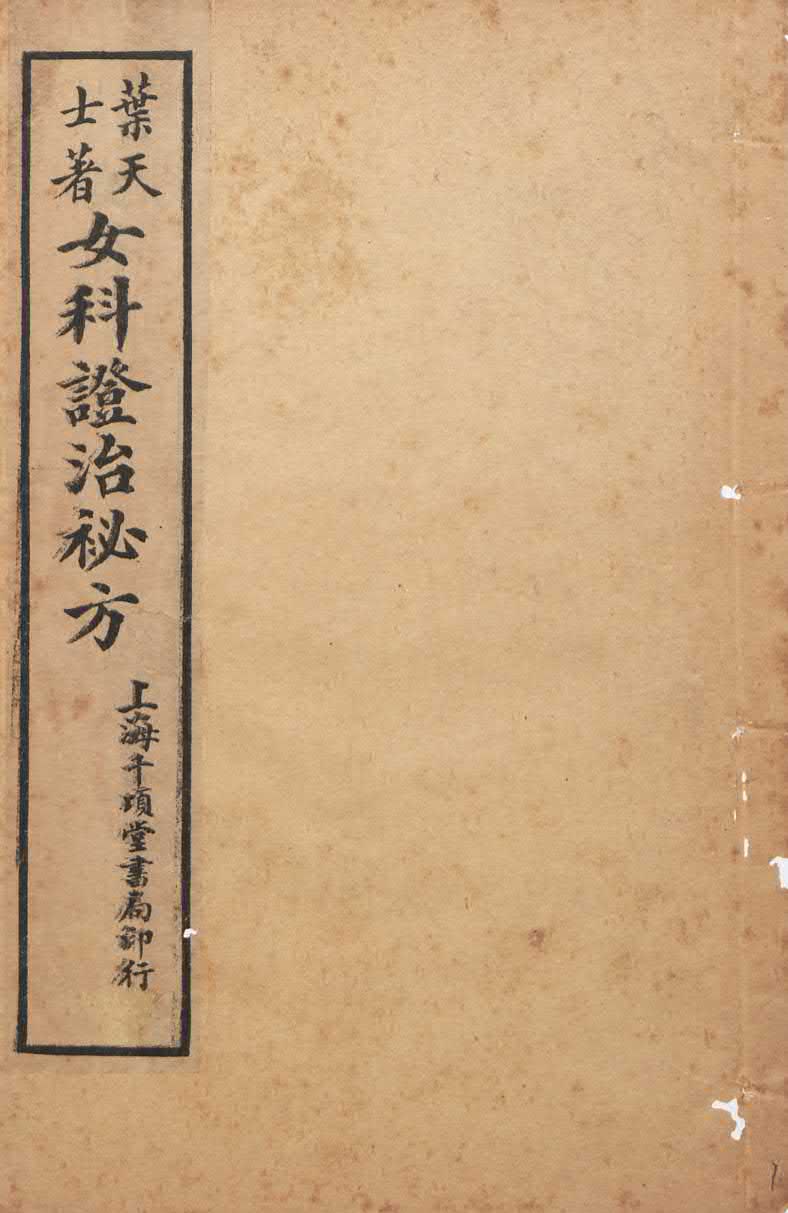 葉天士著
女科證治祕方
上海千頃堂書局印行